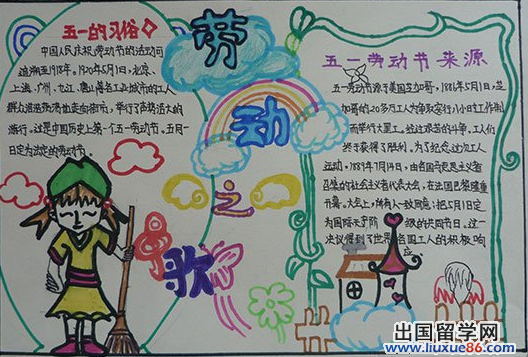 五一的习俗
中国人民庆祝劳动节的活动可
追溯至1918年。1920年5月1日,北京、
上海、广州、九江、唐山等各工业城市的工人
群众浩浩荡荡地走向街市,举行了声势浩大的
游行。这是中国历史上第一个五一劳动节。五月一
日定为法定的劳动节。
劳动之歌
五一劳动节来源
五一劳动节源于美国芝加哥,1886年5月1日,芝
加哥的20多万工人为争取实行八小时工作制
而举行大罢工。经过艰苦的斗争,工人们
终于获得了胜利。为了纪念这次工人
运动,1889年7月14日,由各国马克思主义者
召集的社会主义者代表大会,在法国巴黎隆重
开幕。大会上,所有人一致同意:把5月1日定
为国际无产阶级的共同节日。这一
决议得到了世界各国工人的积极响
应。
出国留学网
www.liuxue86.com